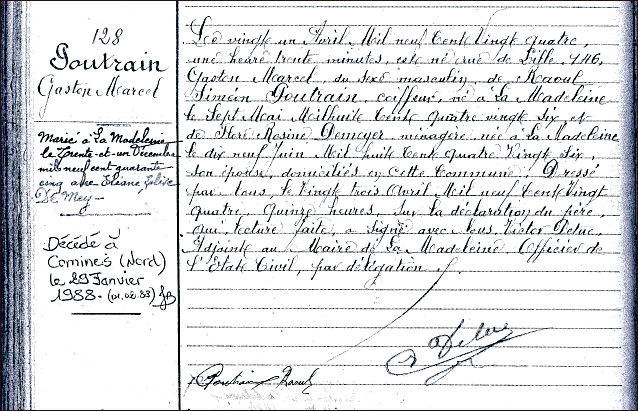 128
Poutrain
Gaston Marcel
Marié à La Madeleine
le Trente-et-un Décembre
mil neuf cent quarante
cinq avec Eliane
De Mey
Décédé à
Comines (Nord)
le 29 Janvier
1988 - (01.02.88)
Le vingt un Avril Mil neuf Cent Vingt quatre,
une heure trente minutes, est né rue de Lille, 146,
Gaston Marcel, du sexe masculin, de Raoul
Siméon Poutrain, coiffeur, né à La Madeleine
le Sept Mai Mil huit Cent quatre vingt six, et
de Rosine Demeyer, ménagère, née à La Madeleine
le dix neuf Juin Mil huit Cent quatre Vingt Six,
son épouse, domiciliés en cette Commune. Dressé
par Nous, le Vingt trois Avril Mil neuf Cent Vingt
quatre, quinze heures, sur la déclaration du père,
qui, lecture faite, a signé avec Nous, Victor Deluc,
Adjoint au Maire de La Madeleine, Officier de
l'Etat Civil, par délégation
Poutrain Raoul